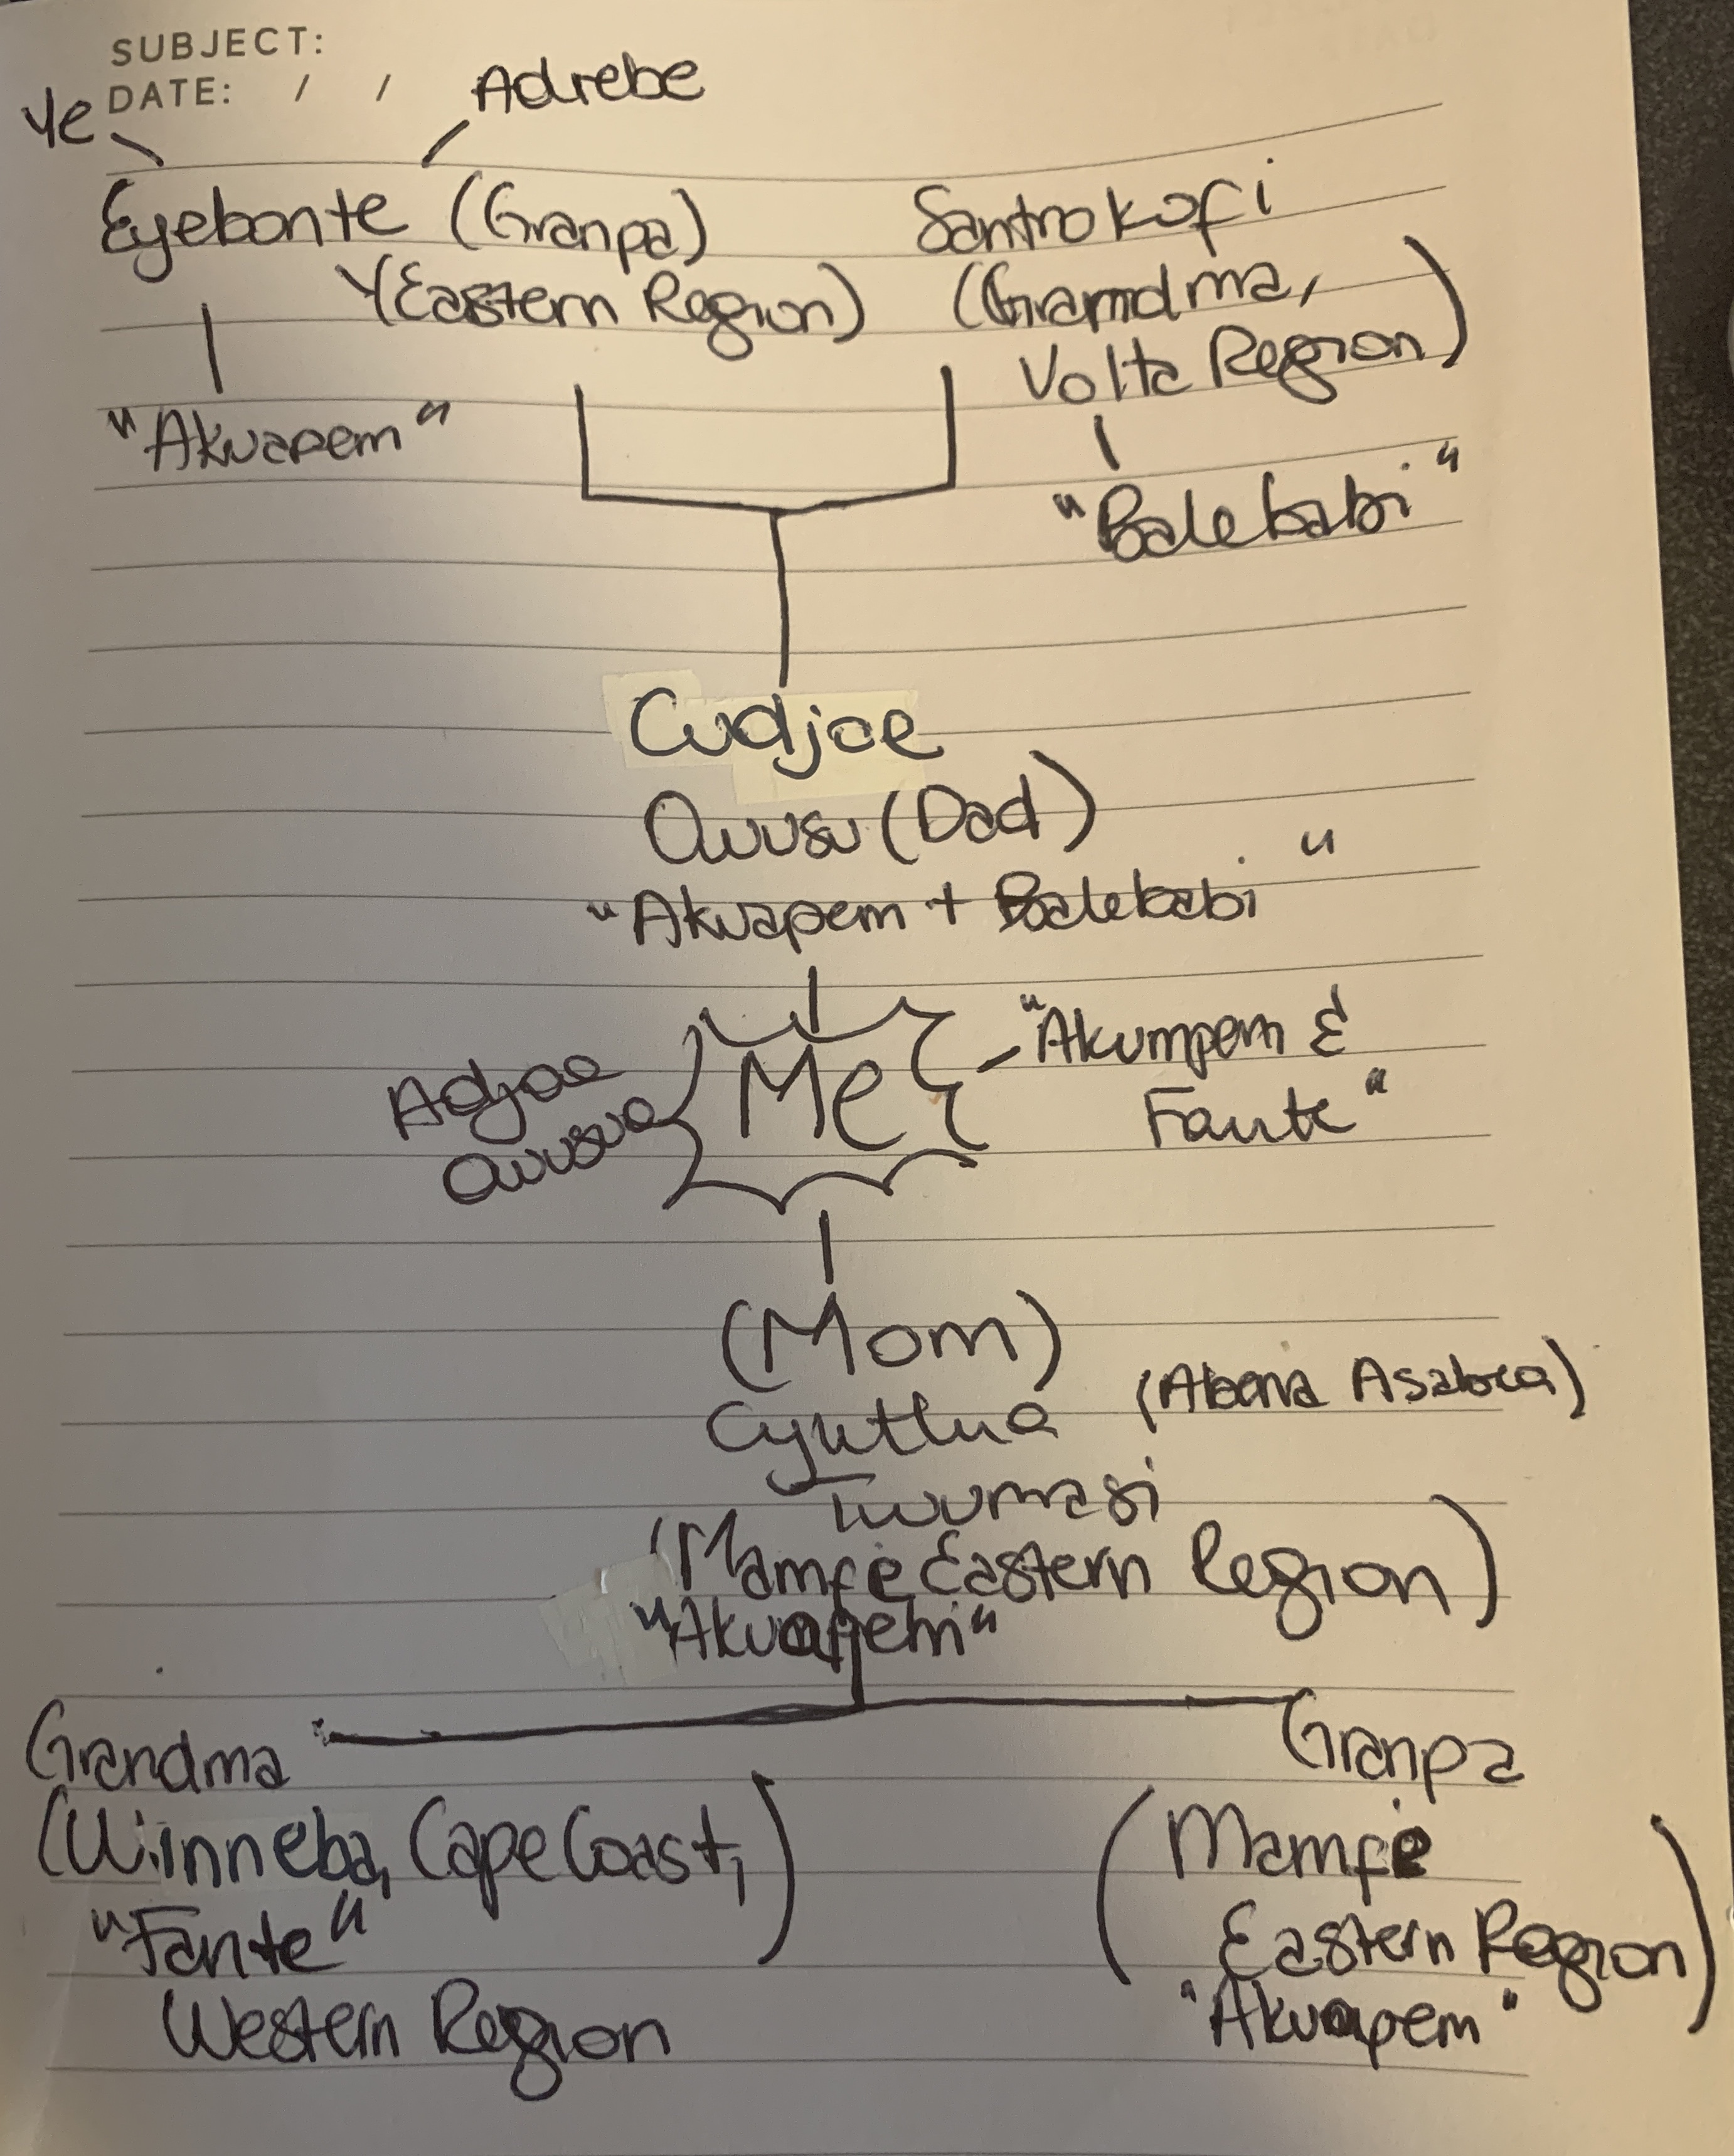 SUBJECT:
DATE: / /
Ye
Adrebe
Eyebonte (Granpa)
(Eastern Region)
"Akuapem"
Santrokofi
(Gramdma,
Volta Region)
"Balekabi"
Cudjoe
Owusu (Dad)
"Akuapem + Balekabi"
Adjoe
Owusua
Me
"Akumpem &
Fante"
(Mom)
Cynthia
(Abena Asabea)
Twumasi
(Mamfe Eastern Region)
"Akuapem"
Grandma
(Winneba, Cape Coast,)
"Fante"
Western Region
Granpa
(Mamfe
Eastern Region)
"Akuapem"